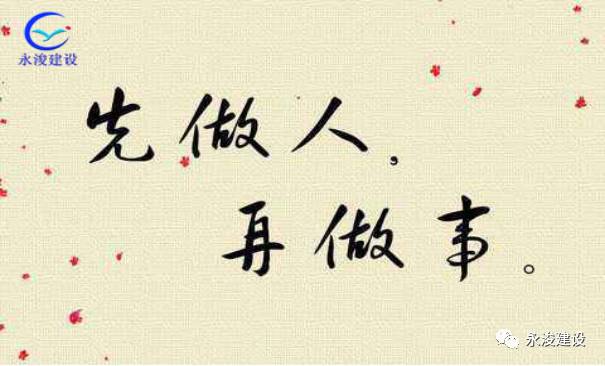 永浚建设
先做人，
再做事。
永浚建设